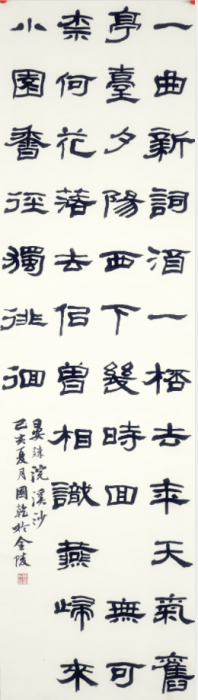 一曲新詞酒一桮去年天氣舊
亭臺夕陽西下幾時回無可
柰何花落去佀曾相識燕歸來
小園香徑獨徘徊
晏殊浣溪沙
己亥夏月國乾於金陵